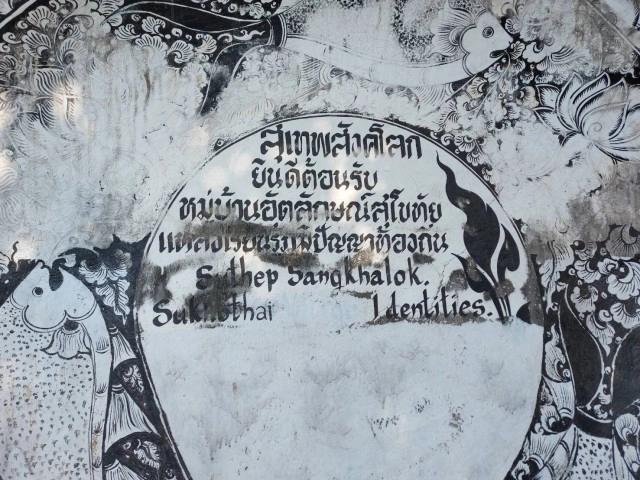 สุเทพสังคโลก
ยินดีต้อนรับ
หมู่บ้านอัตลักษณ์สุโขทัย
แหล่งเรียนรู้ภูมิปัญญาท้องถิ่น
Suthep Sangkhalok.
Sukhothai Identities.